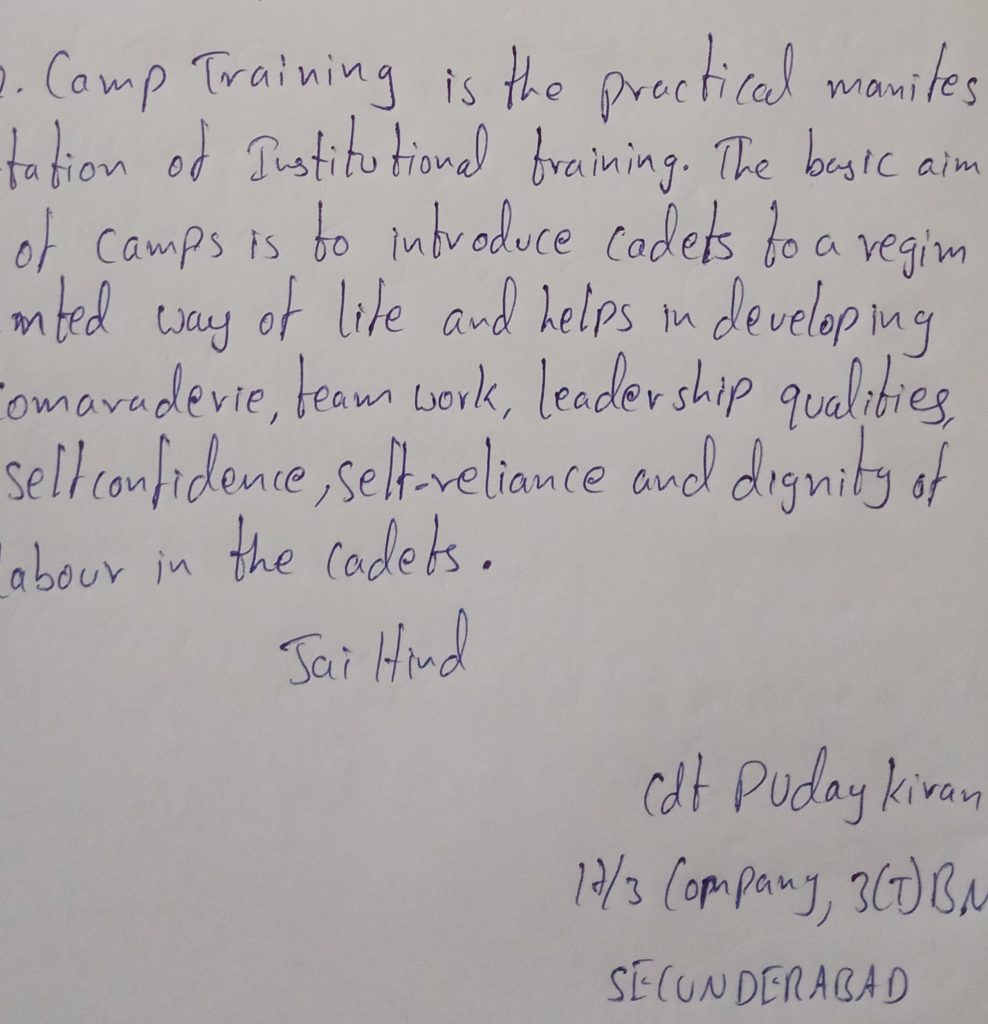 2. Camp Training is the practical manifes
tation of Institutional training. The basic aim
of camps is to introduce cadets to a regim
nted way of life and helps in developing
comaraderie, team work, leadership qualities,
self confidence, self-reliance and dignity of
labour in the cadets.
Jai Hind
Cdt P Uday Kiran
17/3 Company, 3(T) BN
SECUNDERABAD